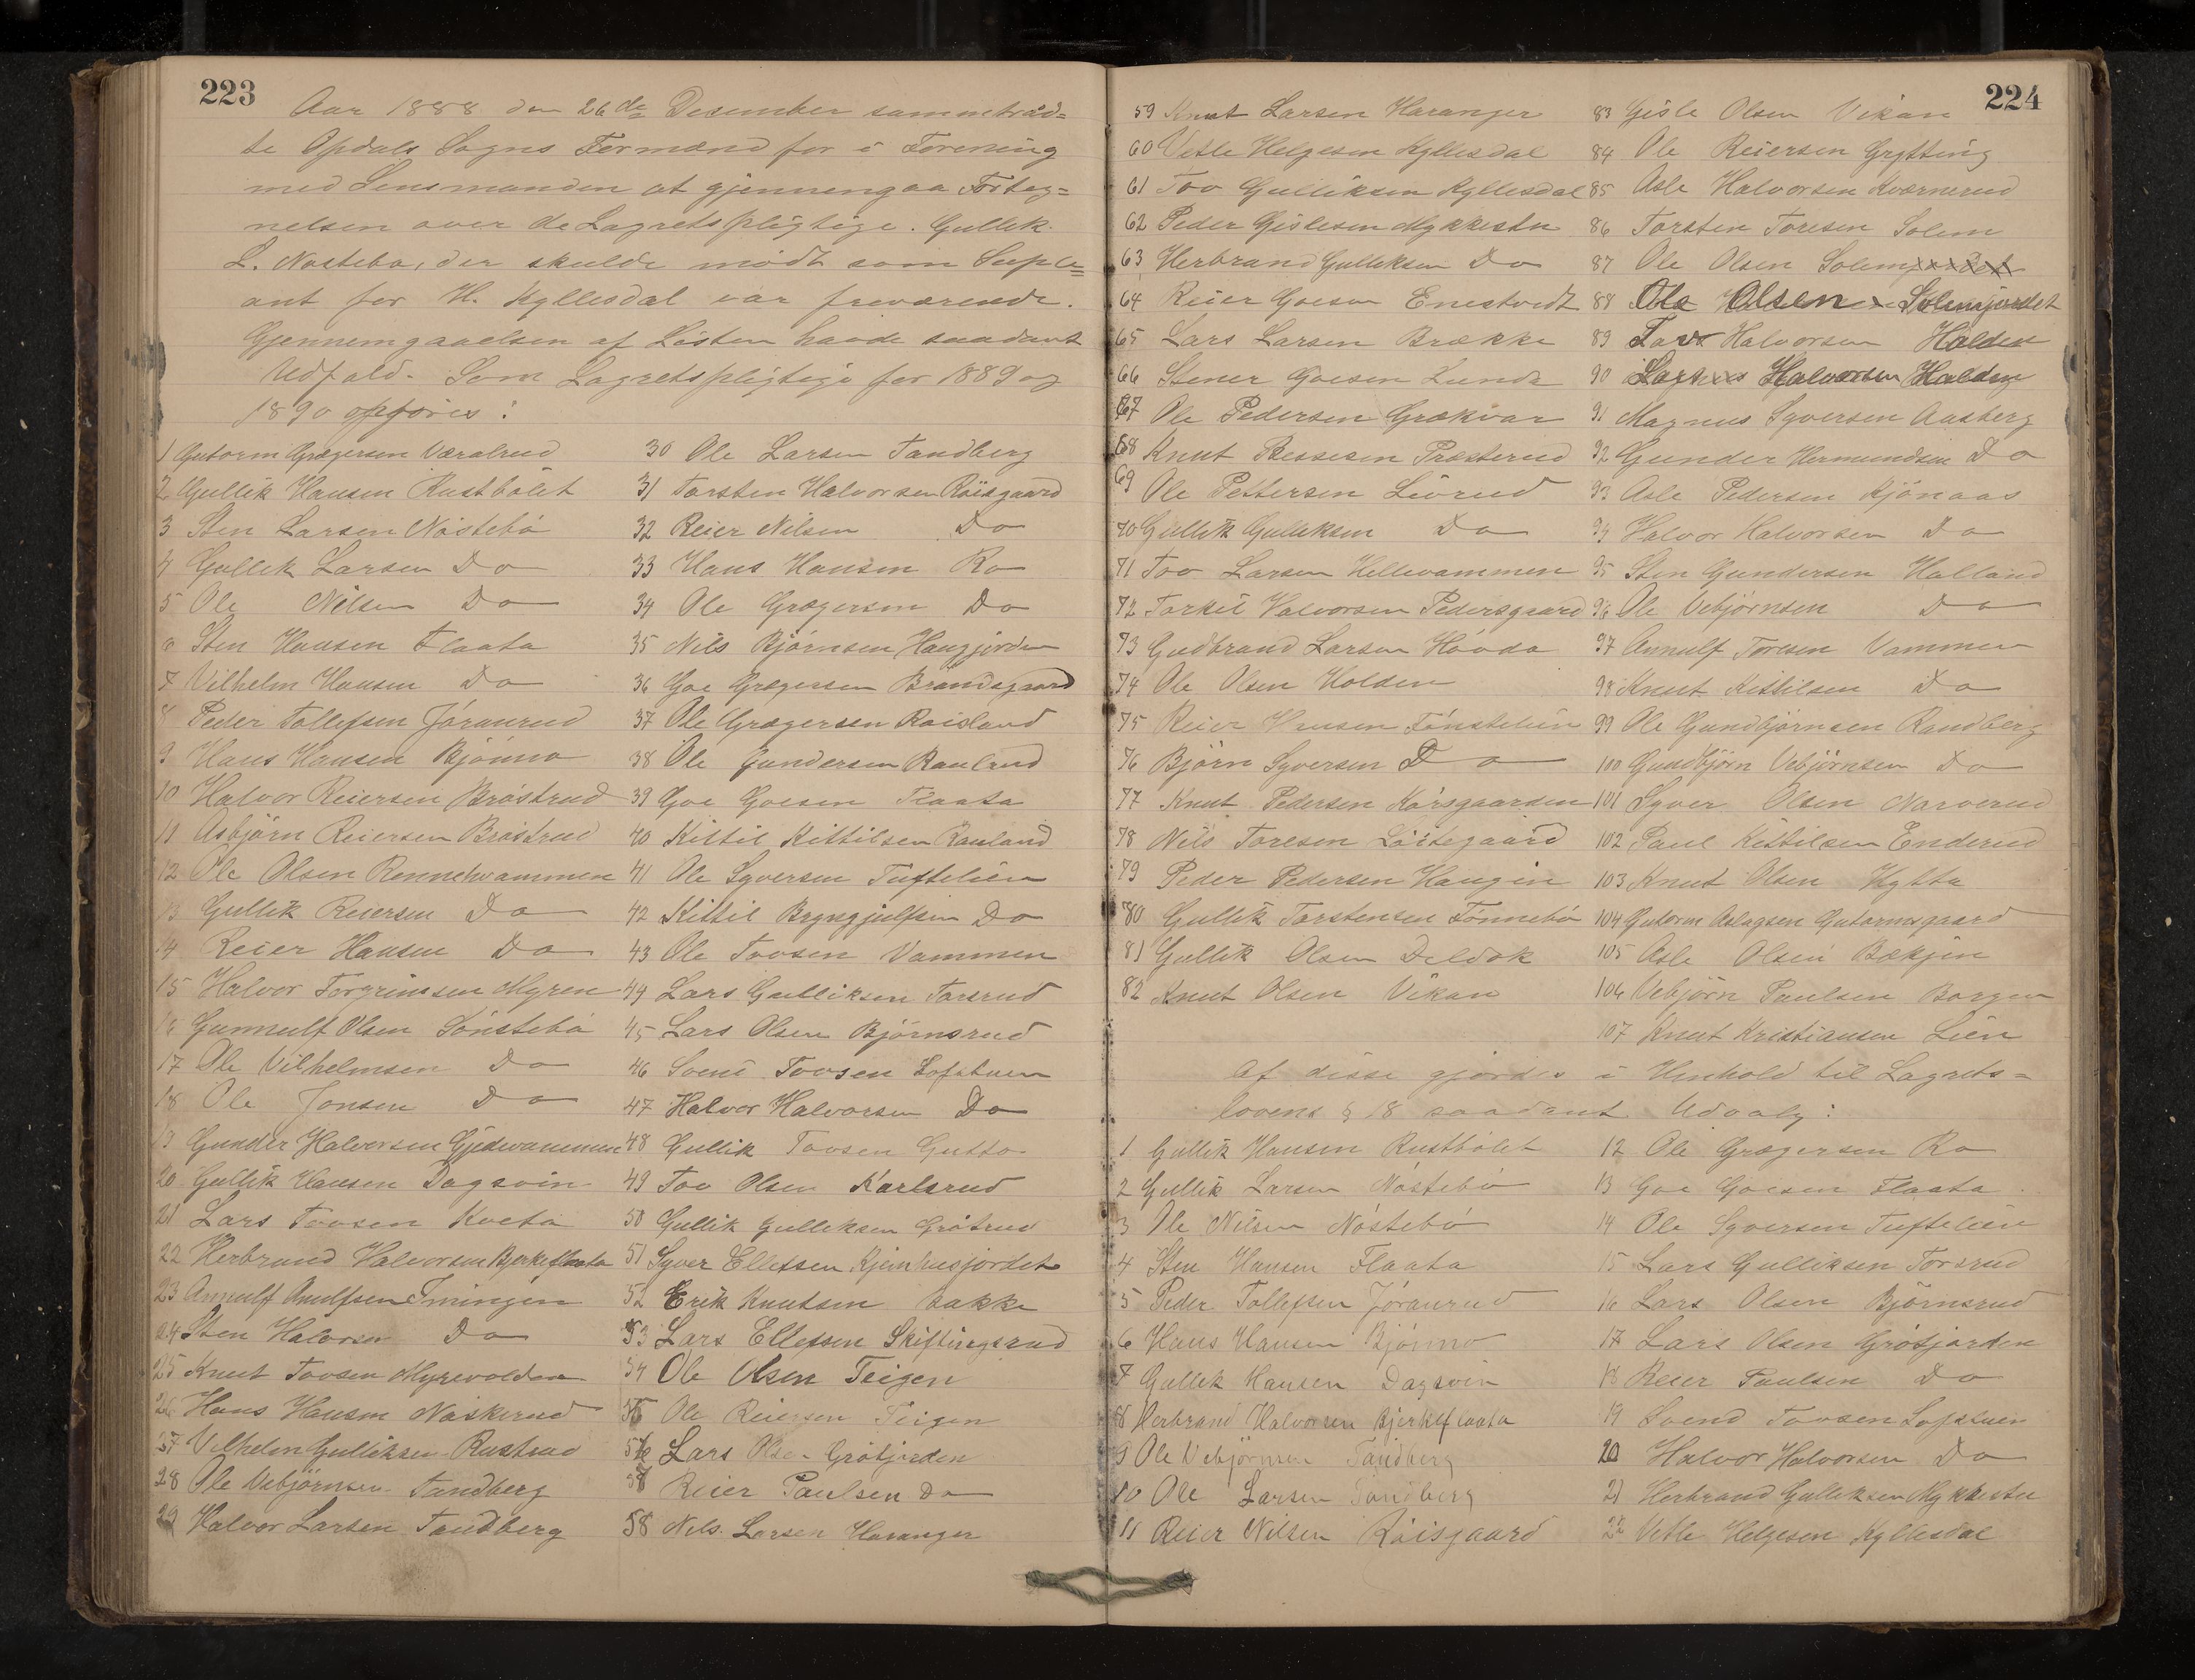 223
Aar 1888 den 26de Desember sammentraad=
te Opdals Sogns Formænd for i Forening
med Lensmanden at gjennemgaa Forteg=
nelsen over de Lagretspligtige. Gullik
L. Nøstebø, der skulde mødt som Suple=
ant for H. Kyllesdal var fraværende.
Gjennemgaaelsen af Listen havde saadant
Udfald. Som Lagretspligtige for 1889 og
1890 opføres:
1 Gutorm Grægersen Væralrud
2 Gullik Hansen Rustbølet
3 Sten Larsen Nöstebö
4 Gullik Larsen Do
5 Ole Nilsen Do
6 Sten Hansen Flaata
7 Vilhelm Hansen Do
8 Peder Tollefsen Jöranrud
9 Hans Hansen Bjönno
10 Halvor Reiersen Bröstrud
11 Asbjörn Reiersen Bröstrud
12 Ole Olsen Rennehvammen
13 Gullik Reiersen Do
14 Reier Hansen Do
15 Halvor Torgrimsen Myren
16 Gunnulf Olsen Sönstebö
17 Ole Vilhelmsen Do
18 Ole Jonsen Do
19 Gunder Halvorsen Gjedevammen
20 Gullik Hansen Dagsvin
21 Lars Tovsen Kveta
22 Herbrand Halvorsen Bjerkeflaata
23 Annulf Anulfsen Imingen
24 Sten Halvorsen Do
25 Knut Tovsen Myrevolden
26 Hans Hansen Naskerud
27 Vilhelm Gulliksen Rustrud
28 Ole Vebjörnsen Tandberg
29 Halvor Larsen Tandberg
30 Ole Larsen Tandberg
31 Torsten Halvorsen Röisgaard
32 Reier Nilsen Do
33 Hans Hansen Ro
34 Ole Grægersen Do
35 Nils Bjørnsen Haugjorden
36 Goe Grægersen Brandsgaard
37 Ole Grægersen Roisland
38 Ole Gundersen Rauland
39 Goe Goesen Flaata
40 Kittil Kittilsen Rauland
41 Ole Syversen Tuftelien
42 Kittil Brynjulfsen Do
43 Ole Tovsen Vammen
44 Lars Gulliksen Torsrud
45 Lars Olsen Björnsrud
46 Svend Tovsen Lofstuen
47 Halvor Halvorsen Do
48 Gullik Tovsen Gutto
49 Tov Olsen Karlsrud
50 Gullik Gulliksen Grötrud
51 Syver Ellefsen Kjemhusjordet
52 Erik Knutsen Bakke
53 Lars Ellefsen Skiftingsrud
54 Ole Olsen Teigen
55 Ole Reiersen Teigen
56 Lars Olsen Grötjorden
57 Reier Paulsen Do
58 Nils Larsen Haranger
224
59 Knut Larsen Haranger
60 Vetle Helgesen Kyllesdal
61 Tov Gulliksen Kyllesdal
62 Peder Gislesen Mykkestu
63 Herbrand Gulliksen Do
64 Reier Goesen Enestvedt
65 Lars Larsen Brække
66 Stener Goesen Lunde
67 Ole Pedersen Grækvar
68 Knut Bessesen Præsterud
69 Ole Pettersen Livrud
70 Gullik Gulliksen Do
71 Tov Larsen Hellevammen
72 Torkil Halvorsen Pedersgaard
73 Gudbrand Larsen Hövda
74 Ole Olsen Holden
75 Reier Hansen Tönstelien
76 Björn Syversen Do
77 Knut Pedersen Korsgaarden
78 Nils Toresen Löitegaard
79 Peder Pedersen Haugen
80 Gullik Torstensen Tönnebö
81 Gullik Olsen Deldok
82 Knut Olsen Vikan
83 Gisle Olsen Vikan
84 Ole Reiersen Grytting
85 Asle Halvorsen Kværnerud
86 Torsten Toresen Solem
87 Ole Olsen Solemjordet
88 Ole Olsen Solemjordet
89 Tov Halvorsen Holden
90 Halvorsen Halden
91 Magnus Syversen Aasberg
92 Gunder Hermundsen Do
93 Asle Pedersen Kjönaas
94 Halvor Halvorsen Do
95 Sten Gundersen Halland
96 Ole Vebjørnsen Do
97 Annulf Toresen Vammen
98 Knut Kittilsen Do
99 Ole Gundbjörnsen Randberg
100 Gundbjörn Vebjörnsen Do
101 Syver Olsen Narverud
102 Paul Kittilsen Enderud
103 Knut Olsen Hytta
104 Gutorm Aslagsen Gutormsgaard
105 Asle Olsen Bækjin
106 Vebjörn Paulsen Borgen
107 Knut Kristiansen Lien
Af disse gjordes i Henhold til Lagrets=
lovens § 18 saadant Udvalg:
1 Gullik Hansen Rustbölet
2 Gullik Larsen Nöstebö
3 Ole Nilsen Nöstebö
4 Sten Hansen Flaata
5 Peder Tollefsen Jöranrud
6 Hans Hansen Bjönno
7 Gullik Hansen Dagsvin
8 Herbrand Halvorsen Bjerkeflaata
9 Ole Vebjörnsen Tandberg
10 Ole Larsen Tandberg
11 Reier Nilsen Röisgaard
12 Ole Grægersen Ro
13 Goe Goesen Flaata
14 Ole Syversen Tuftelien
15 Lars Gulliksen Torsrud
16 Lars Olsen Björnsrud
17 Lars Olsen Grötjorden
18 Reier Paulsen Do
19 Svend Tovsen Lofstuen
20 Halvor Halvorsen Do
21 Herbrand Gulliksen Mykkestu
22 Vetle Helgesen Kyllesdal